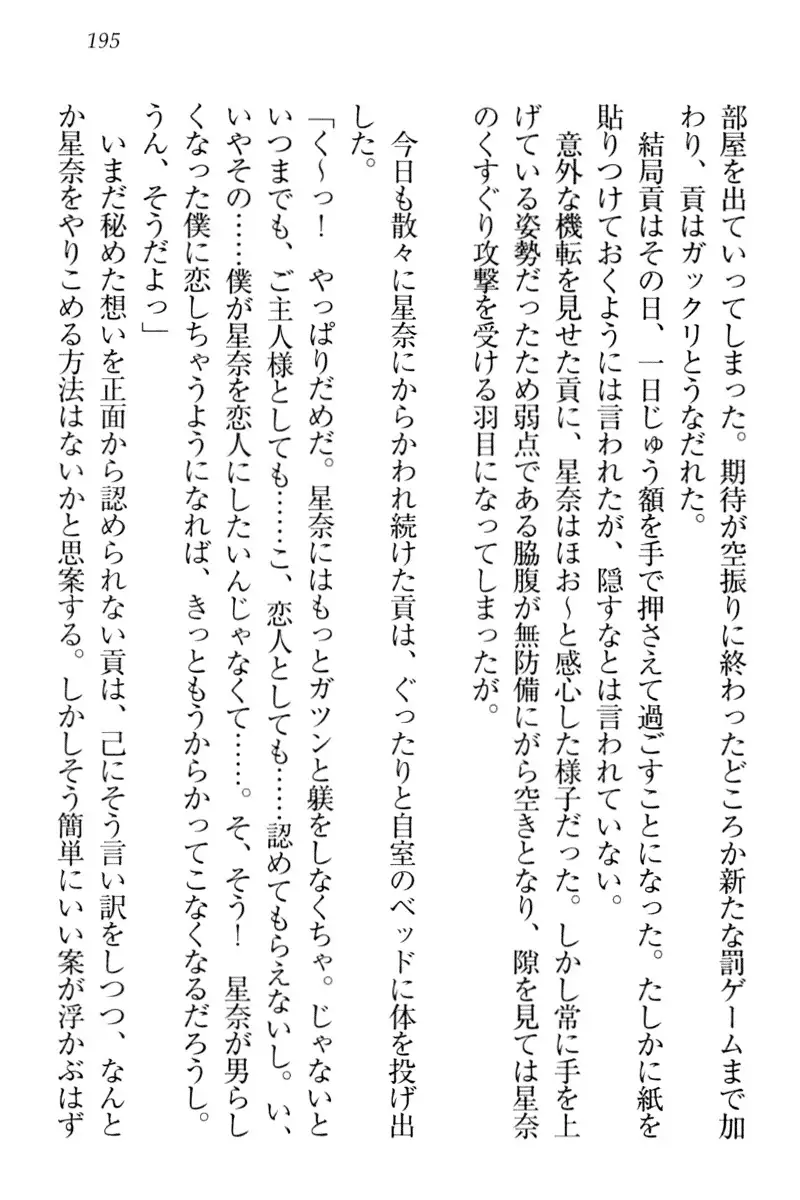 195
部屋を出ていってしまった。期待が空振りに終わったどころか新たな罰ゲームまで加
わり、貢はガックリとうなだれた。
　結局貢はその日、一日じゅう額を手で押さえて過ごすことになった。たしかに紙を
貼りつけておくようには言われたが、隠すなとは言われていない。
　意外な機転を見せた貢に、星奈はほお～と感心した様子だった。しかし常に手を上
げている姿勢だったため弱点である脇腹が無防備にがら空きとなり、隙を見ては星奈
のくすぐり攻撃を受ける羽目になってしまったが。
　今日も散々に星奈にからかわれ続けた貢は、ぐったりと自室のベッドに体を投げ出
した。
「く～っ！　やっぱりだめだ。星奈にはもっとガツンと躾をしなくちゃ。じゃないと
いつまでも、ご主人様としても……こ、恋人としても……認めてもらえないし。い、
いやその……僕が星奈を恋人にしたいんじゃなくて……。そ、そう！　星奈が男らし
くなった僕に恋しちゃうようになれば、きっともうからかってこなくなるだろうし。
うん、そうだよっ」
　いまだ秘めた想いを正面から認められない貢は、己にそう言い訳をしつつ、なんと
か星奈をやりこめる方法はないかと思案する。しかしそう簡単にいい案が浮かぶはず